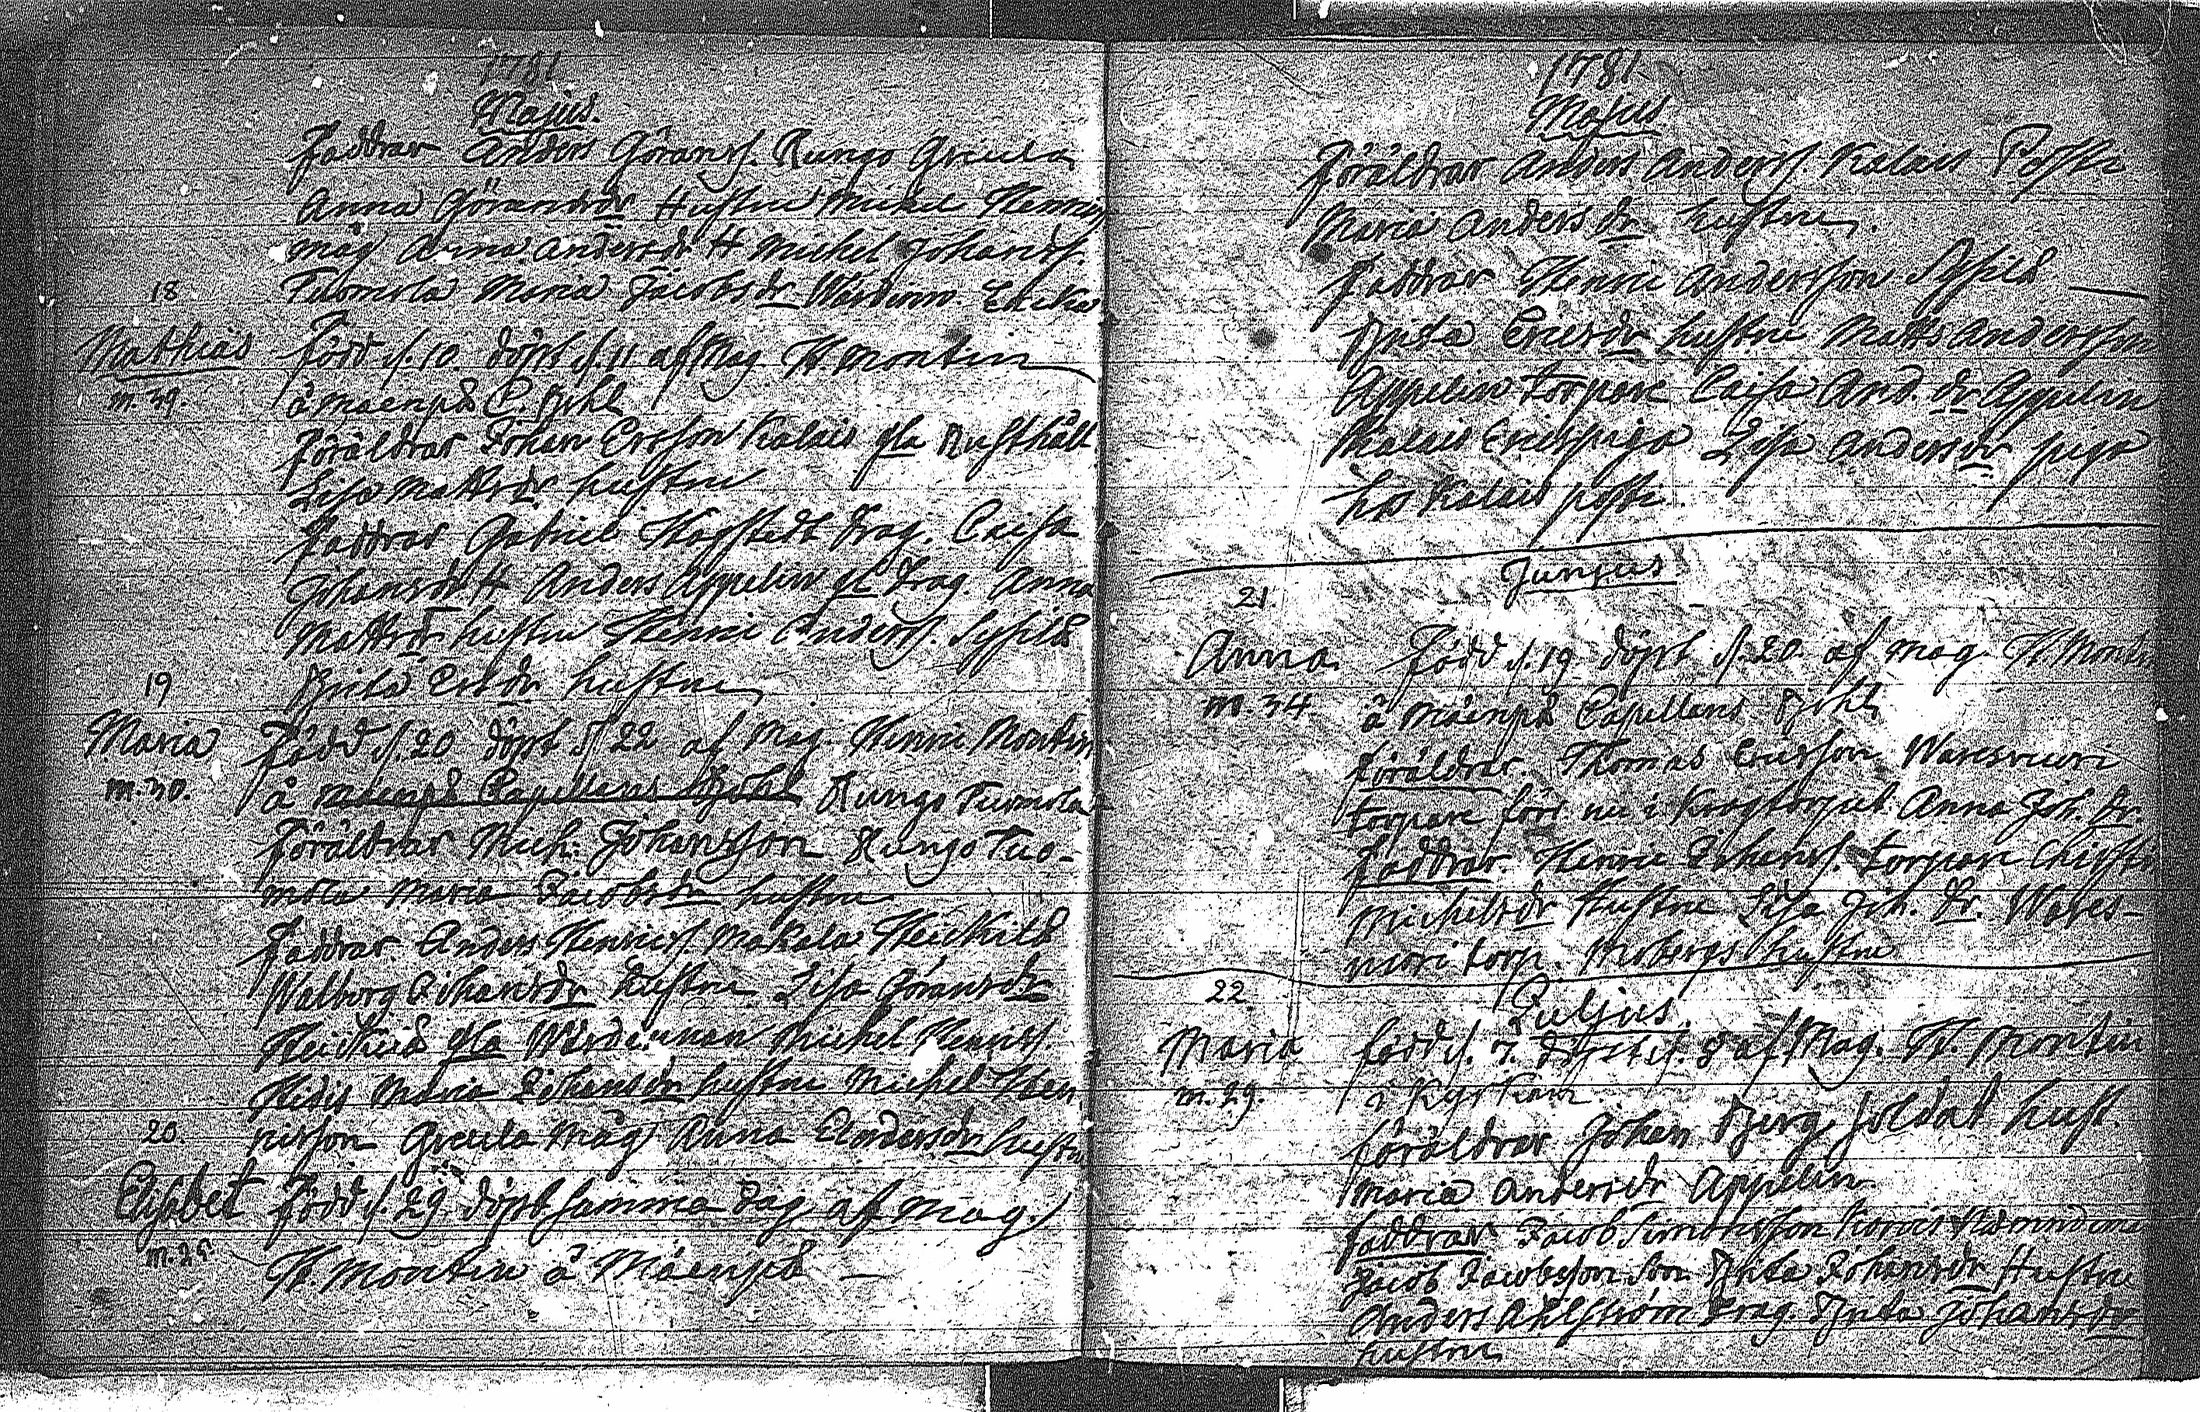 1781
Majus.
Faddrar Anders Göranss. Rungo Greula
Anna Göransdr Hustru Michel Henris
måg Anna Andersdr H Michel Johanss.
Tuomola Maria Jacobsdr Wärdinn. Encka
18
Mathias
m. 39.
född d. 10. döpt d. 11 af Mag H. Montin
å Maenpä C. Bohl
föräldrar Johan Ersson Kalais gla Rusthåll
Lisa Mattsdr hustru
faddrar Gabriel Skogstedt Drag. Caisa
Johansdr H Anders Appelin gl Drag. Anna
Mattsdr hustru Henric Anderss. Sypilä
Brita Ersdr hustru
19
Maria
m. 30.
född d. 20 döpt d 22 af Mag. Henric Montin
å Mäenpä Capellans Bohl Rungo Tuomola
Föräldrar Mich: Johansson Rungo Tuo-
mola Maria Jacobsdr hustru
faddrar Anders Henricss. Makala Heickilä
Walborg Johansdr hustru Lisa Göransdr
Heickilä gla Wärdinnan Michel Henrics
Maria Johansdr hustru Michel Hen
ricsson Greula Måg Anna Andersdr hustru
20.
Elisabet
m. 25
född d. 29 döpt samma dag af Mag.
H. Montin å Mäenpä
1781
Majus
föräldrar Anders Anderss. Kalais
Maria Andersdr hustru
faddrar Henric Andersson Sypilä
Brita Ericsdr hustru Matts Andersson
Appelin torpare Caisa And. dr Appelin
Kalais Ericspiga Lisa Andersdr piga
hos Kalais
Junjus
21.
Anna.
m. 34
Född d. 19 döpt d. 20 af Mag H Montin
å Mäenpä Capellans Bohl
föräldrar. Thomas Ericsson Waresvuori
torpare förr nu i Krogtorpet Anna Joh. Dr.
faddrar. Henric Johanss. torpare
Michelsdr Hustru Lisa Joh. Dr. Wares-
vuori torp. Mobergs hustru
22
Juljus
Maria
m. 29.
född d. 7. döpt d. 8 af Mag. H. Montin
i Kyrkan.
föräldrar Johan Berg Soldat hust.
Maria Andersdr Appelin
faddrar Jacob Simonsson
Jacob Jacobsson son Brita Johansdr Hustru
Anders Ahlström Drag. Brita Johansdr
hustru